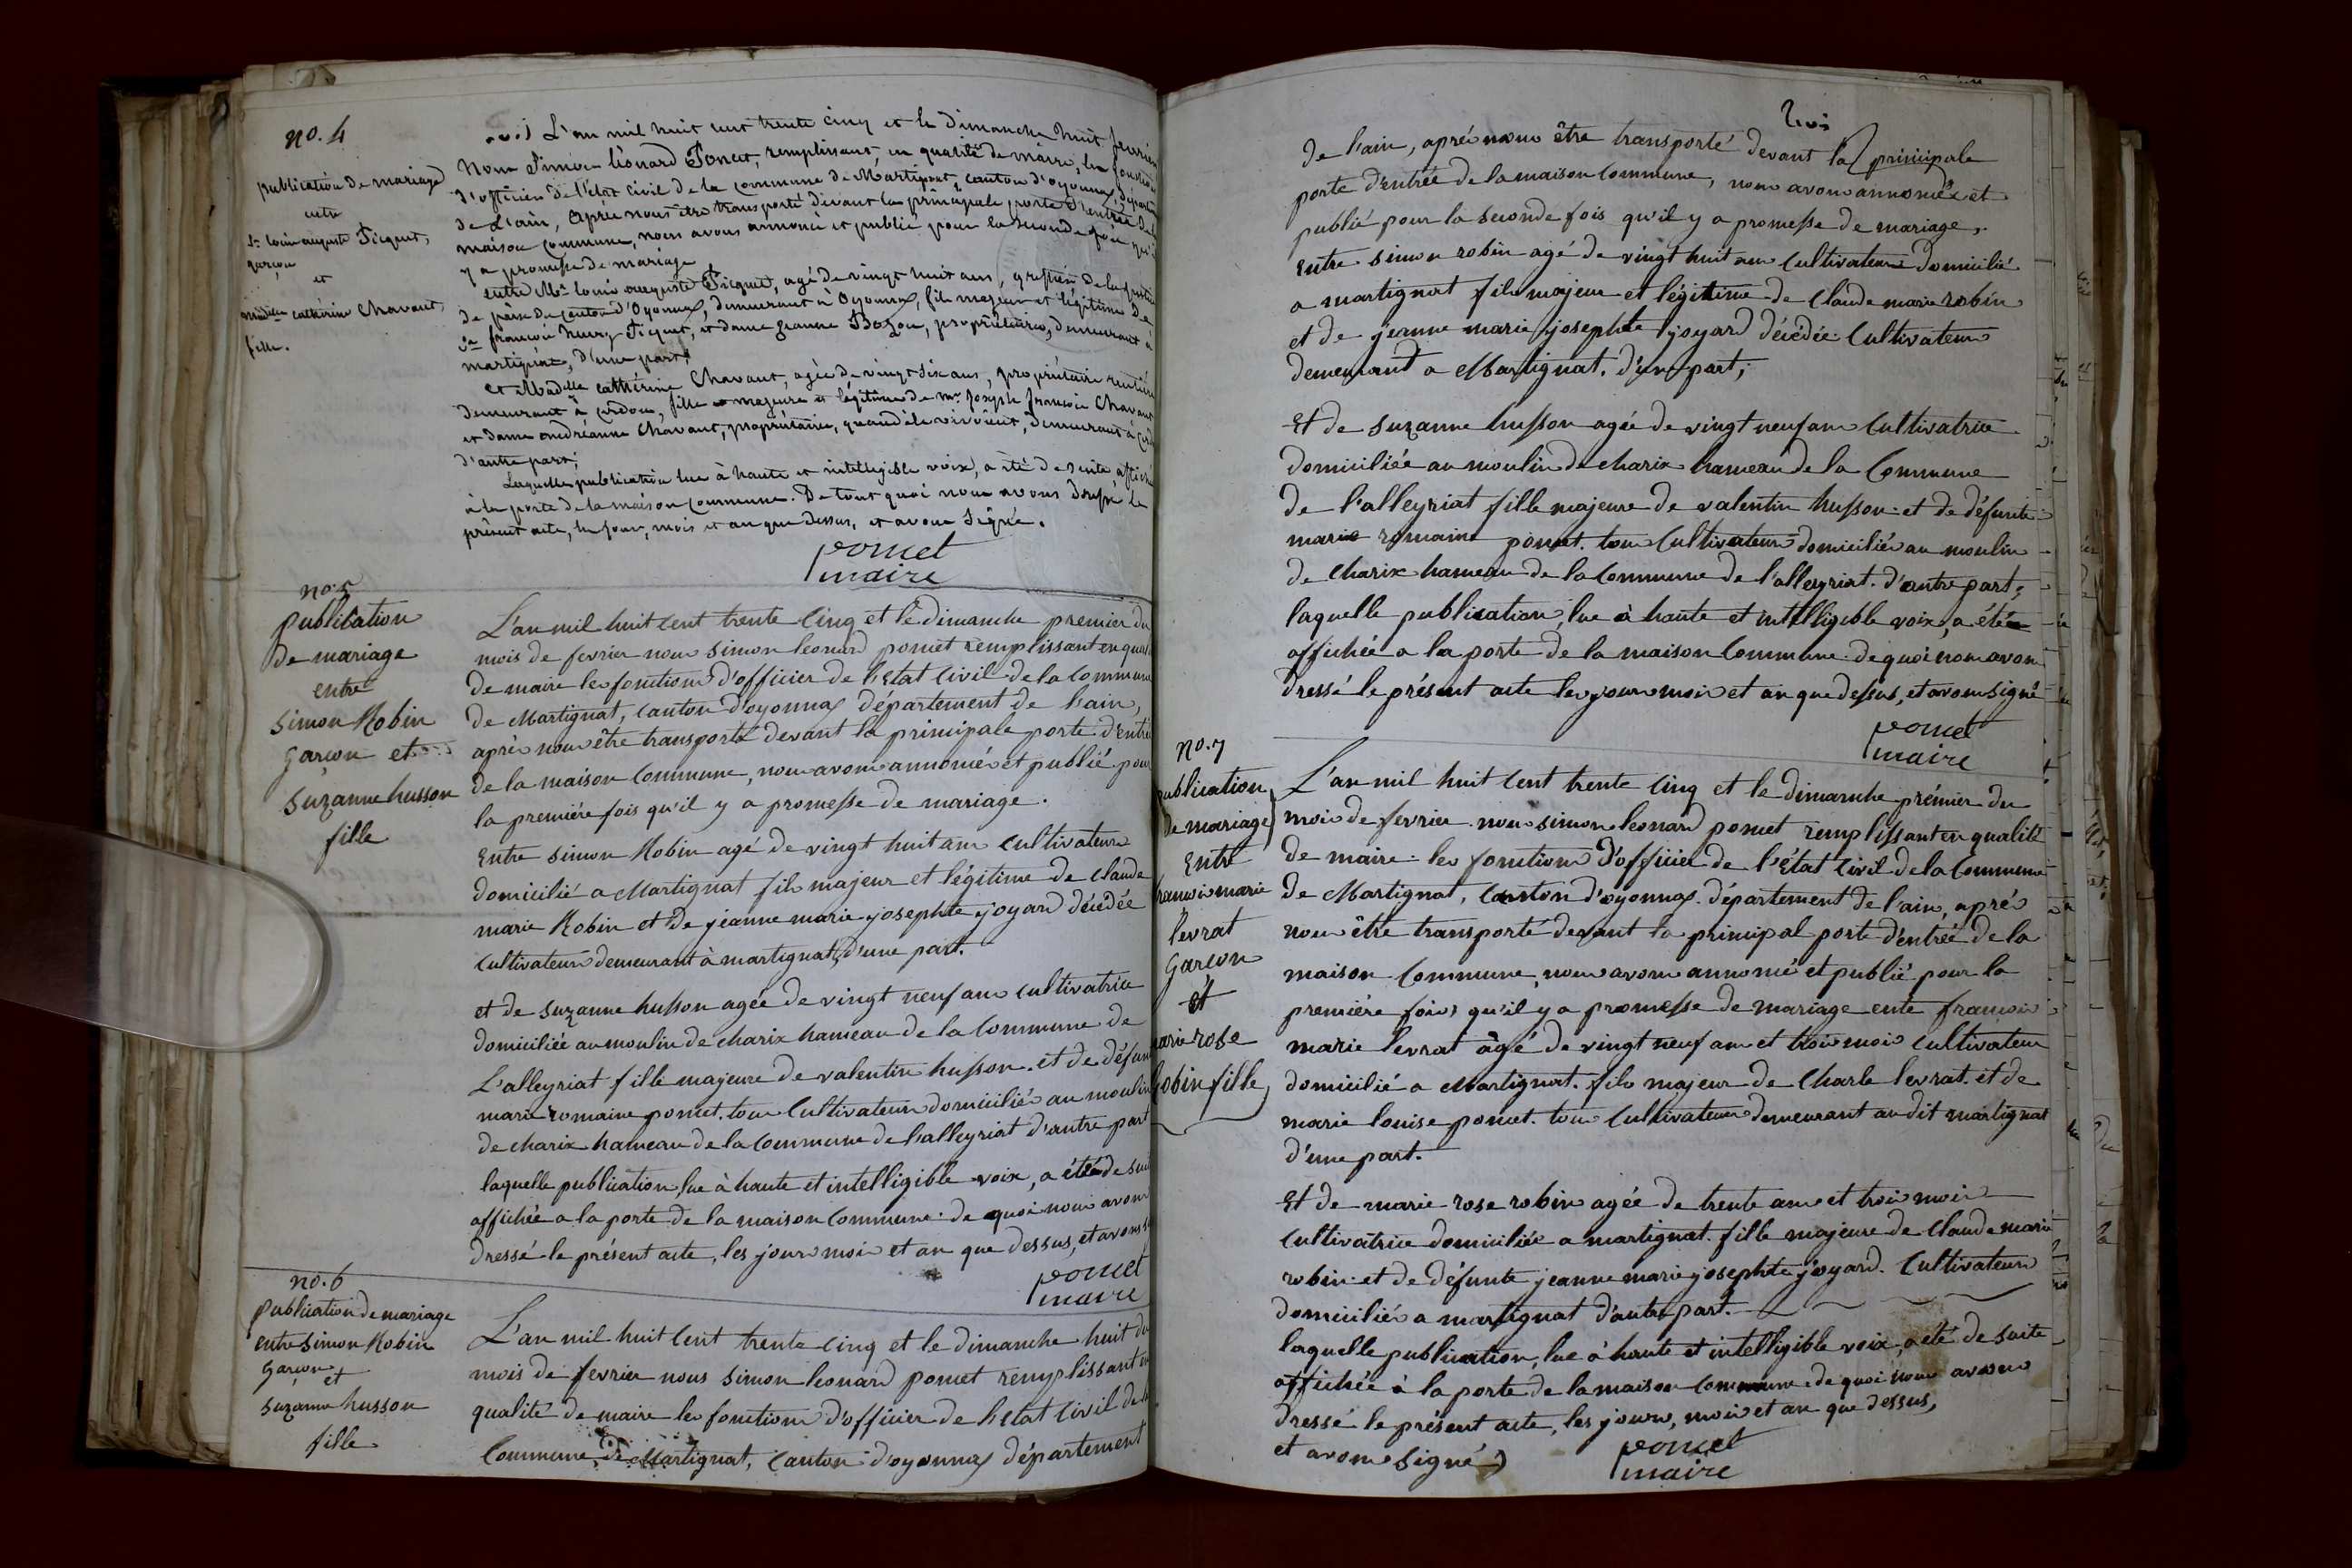 no. 4
publication de mariage
entre
Sr. louis auguste Picquet,
garçon
et
madelle cathérine Chavant,
fille.
L'an mil huit cent trente cinq et le dimanche huit fevrier
Nous Simon léonard Poncet, remplissant, en qualité de maire, les fonctions
d'officier de l'état civil de la commune de Martignat, canton d'oyonnax, départ
de L'ain, Après nous être transporté devant la principale porte d'entrée de la
maison commune, nous avons annoncé et publié pour la seconde fois qu'il
y a promesse de mariage
entre Mr. louis auguste Picquet, agé de vingt huit ans, greffier de la justice
de paix du canton d'Oyonnax, demeurant à Oyonnax, fils majeur et légitime de
Sr. françois Picquet, et dame jeanne, propriétaires, demeurant à
martignat, d'une part;
Et Madelle cathérine Chavant, agée de vingt six ans, propriétaire rentière
demeurant à cerdon, fille majeure et légitime de mr. Joseph francois Chavant
et dame andréanne Chavant, propriétaires, quand ils vivoient, demeurant à
d'autre part;
Laquelle publication lue à haute et intelligible voix, a été de suite affiché
à la porte de la maison commune. De tout quoi nous avons dressé le
présent acte, les jour, mois et an que dessus, et avons signé.
poncet
maire
no. 5
publication
de mariage
entre
simon Robin
garçon et
suzanne husson
fille
L'an mil huit cent trente cinq et le dimanche premier du
mois de fevrier nous simon leonard poncet remplissant en qual
de maire les fonctions d'officier de l'etat civil de la commune
de Martignat, canton d'oyonnax département de l'ain,
après nous être transporté devant la principale porte d'entré
de la maison commune, nous avons annoncés et publié pour
la premiére fois qu'il y a promesse de mariage.
entre simon Robin agé de vingt huit ans cultivateur
domicilié a Martignat fils majeur et légitime de claude
marie Robin et de jeanne marie josephte joyard décédée
cultivateurs demeurant à martignat, d'une part.
et de suzanne husson agée de vingt neuf ans cultivatrice
domiciliée au moulin de charix hameau de la commune de
L'alleyriat fille majeure de valentin husson. et de défun
marie romaine poncet. tous cultivateurs domiciliés au moulin
de charix hameau de la commune de l'alleyriat d'autre part
laquelle publication, lue à haute et intelligible voix, a été de sui
affichée a la porte de la maison commune. de quoi nous avons
dressé le présent acte, les jour mois et an que dessus, et avons s
poncet
maire
no. 6
publication de mariage
entre simon Robin
garçon,
et
suzanne husson
fille
L'an mil huit cent trente cinq et le dimanche huit du
mois de fevrier nous simon leonard poncet remplissant en
qualité de maire les fonctions d'officier de l'etat civil de la
commune, de Martignat, canton d'oyonnax département
de l'ain, aprés nous être transporté devant la principale
porte d'entrée de la maison commune, nous avons annoncés et
publié pour la seconde fois qu'il y a promesse de mariage.
entre simon robin agé de vingt huit ans cultivateur domicilié
a martignat fils majeur et légitime de claude marie robin
et de jeanne marie josephte joyard décédée cultivateurs
demeurant a Martignat. d'une part;
et de suzanne husson agée de vingt neuf ans cultivatrice
domiciliée au moulin de charix hameau de la commune
de l'alleyriat fille majeure de valentin husson et de défunte
marie romaine poncet. tous cultivateurs domiciliés au moulin
de charix hameau de la commune de l'alleyriat. d'autre part,
laquelle publication, lue à haute et intelligible voix, a été
affichée a la porte de la maison commune. de quoi nous avons
dressé le présent acte les jour mois et an que dessus, et avons signé
poncet
maire
no. 7
publication
de mariage
entre
francois marie
levrat
garcon
et
marie rose
robin fille
L'an mil huit cent trente cinq et le dimanche prémier du
mois de fevrier nous simon leonard poncet remplissant en qualité
de maire les fonctions d'officier de l'état civil de la commune
de Martignat, canton d'oyonnax. département de l'ain, aprés
nous être transporté devant la principal porte d'entrée de la
maison commune, nous avons annoncé et publié pour la
premiére fois qu'il y a promesse de mariage ente francois
marie levrat âgé de vingt neuf ans et trois mois cultivateur
domicilié a Martignat. fils majeur de charle levrat. et de
marie louise poncet. tous cultivateurs demeurant audit martignat
d'une part.
et de marie rose robin agée de trente ans et trois mois
cultivatrice domiciliée a martignat. fille majeure de claude marie
robin. et de défunte jeanne marie josephte joyard. cultivateurs
domiciliés a martignat d'autre part.
laquelle publication, lue à haute et intelligible voix, a été de suite
affichée à la porte de la maison commune. de quoi nous avons
dressé le présent acte, les jours, mois et an que dessus,
et avons signé
poncet
maire